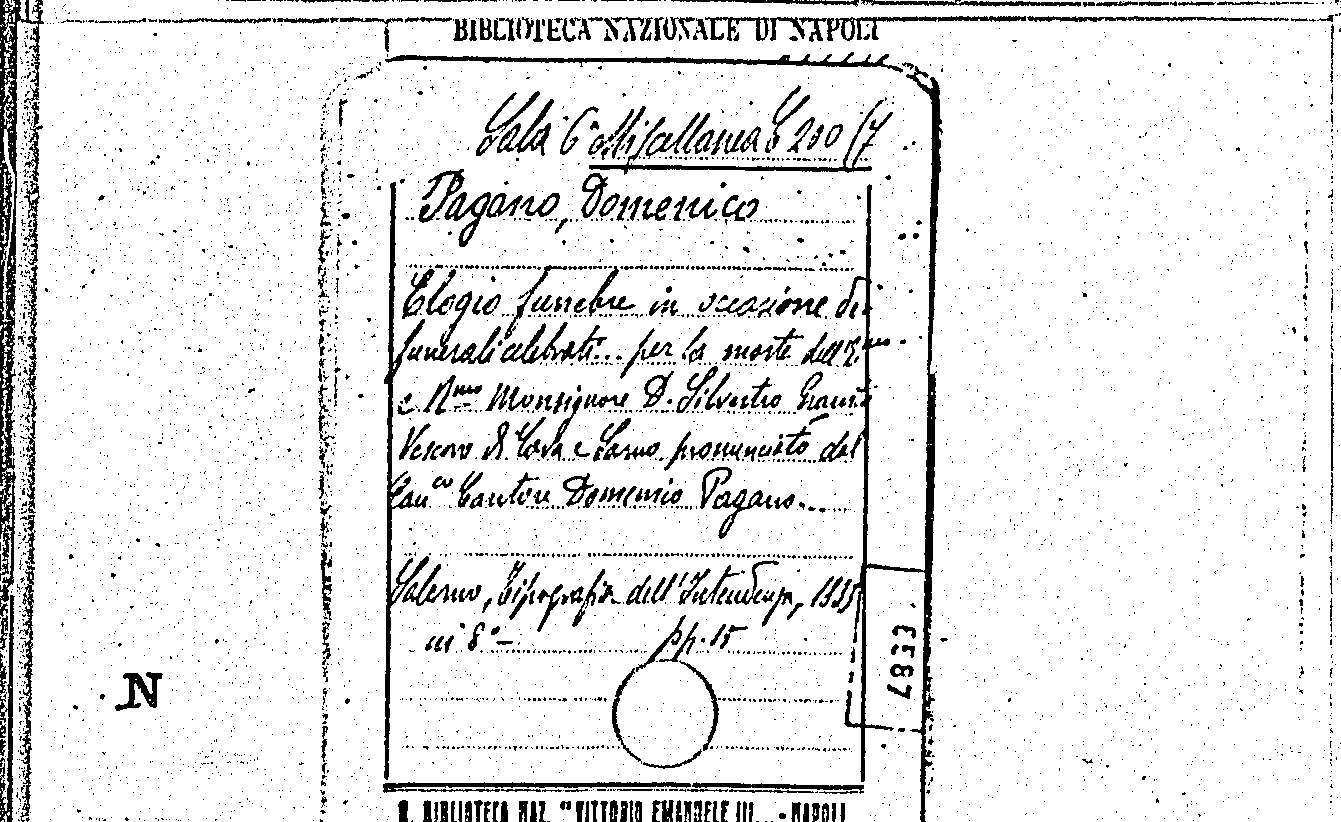 BIBLIOTECA NAZIONALE DI NAPOLI
Sala 6ª Miscellanea C 200 (7
Pagano, Domenico
Elogio funebre in occasione di
funerali celebrati... per la morte dell'
e R.mo Monsignore D. Silvestro
Vescovo di Cava e Sarno pronunciato dal
Can.co Cantore Domenico Pagano...
Salerno, Tipografia dell'Intendenza,
in 8° – pp. 15
3387
N
R. BIBLIOTECA NAZ. "VITTORIO EMANUELE III" - NAPOLI